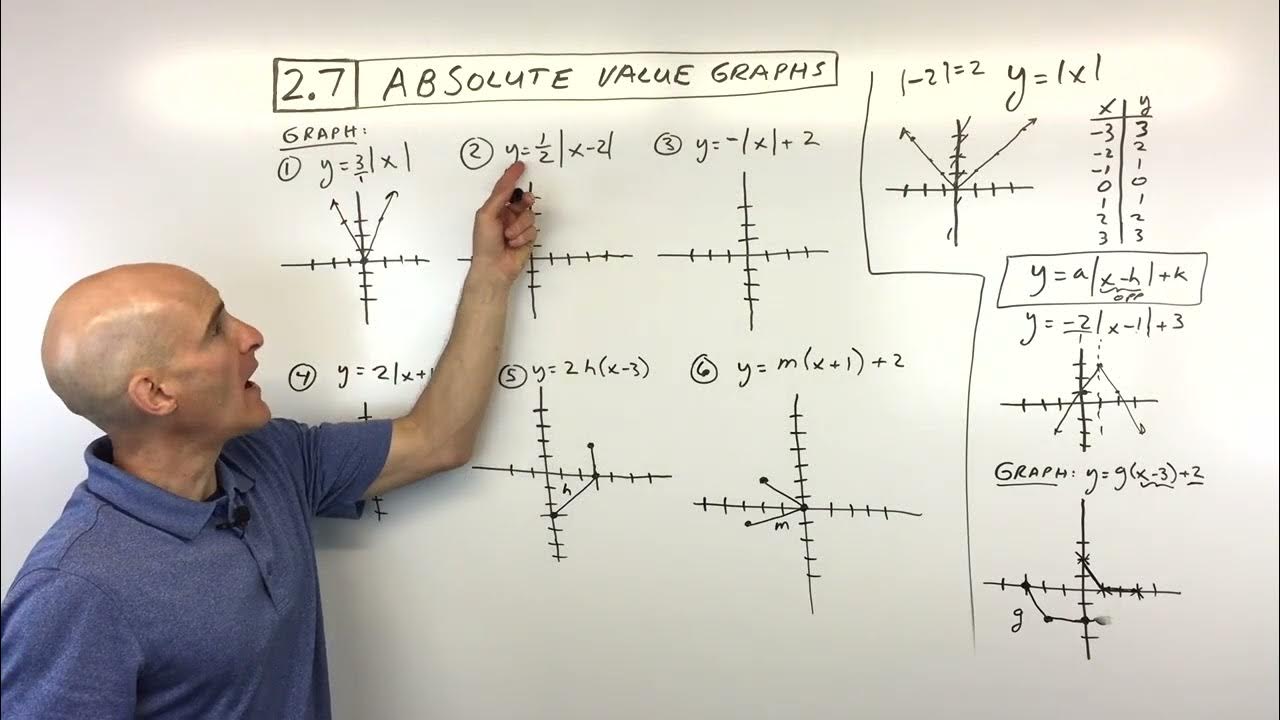 2.7 ABSOLUTE VALUE GRAPHS
GRAPH:
① y=3/1|x|
② y=1/2|x-2|
③ y=-|x|+2
④ y=2|x+1
⑤ y=2h(x-3)
h
⑥ y=m(x+1)+2
m
|-2|=2 y=|x|
x y
-3 3
-2 2
-1 1
0 0
1 1
2 2
3 3
y=a|x-h|+k
OPP
y=-2|x-1|+3
GRAPH: y=g(x-3)+2
g